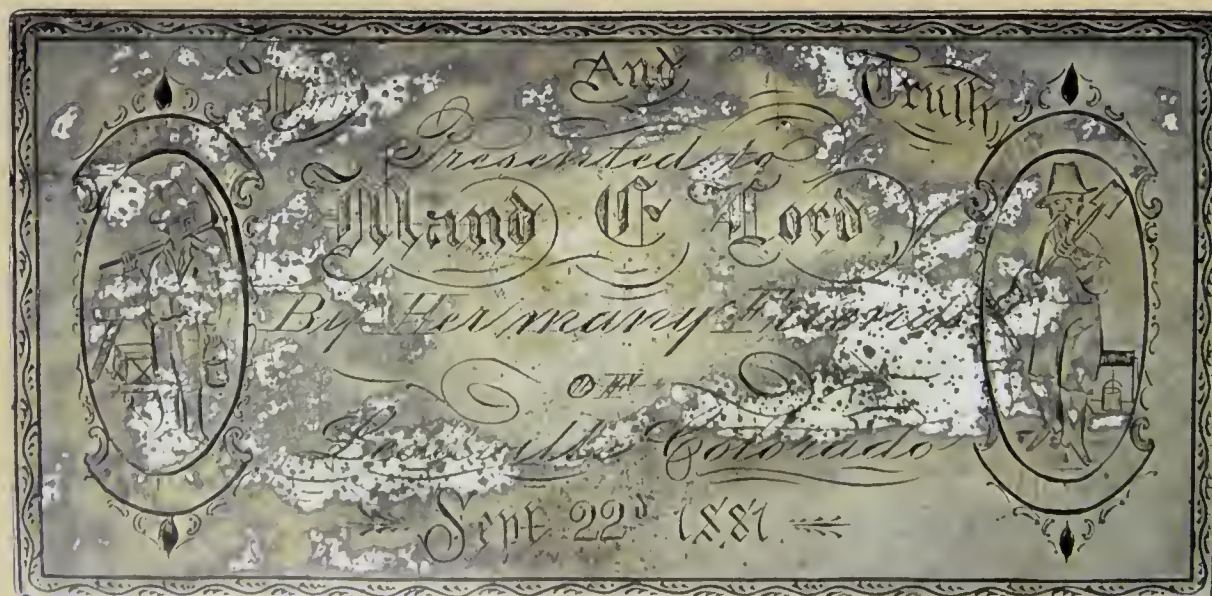 And Truth
Presented to
Maud E Lord
By Her many Friends
OF
Leadville Colorado
Sept 22d 1881